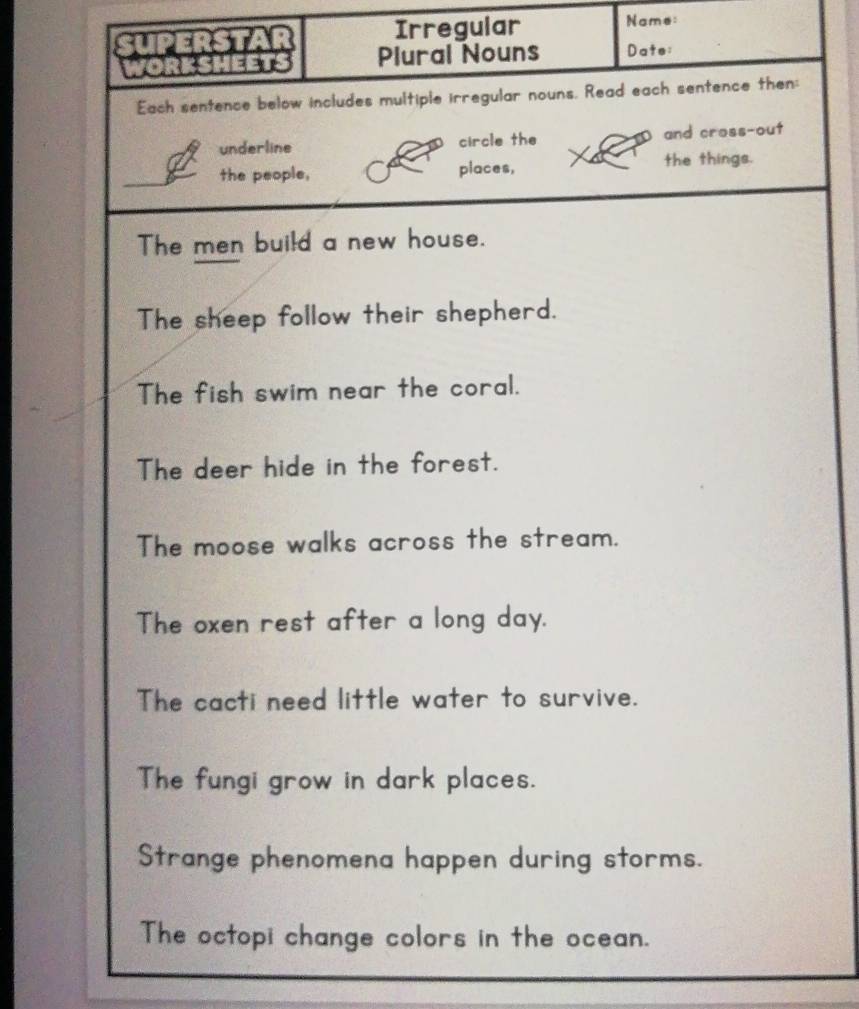 SUPERSTAR
WORKSHEETS
Irregular
Plural Nouns
Name:
Date:
Each sentence below includes multiple irregular nouns. Read each sentence then:
underline
the people,
circle the
places,
and cross-out
the things.
The men build a new house.
The sheep follow their shepherd.
The fish swim near the coral.
The deer hide in the forest.
The moose walks across the stream.
The oxen rest after a long day.
The cacti need little water to survive.
The fungi grow in dark places.
Strange phenomena happen during storms.
The octopi change colors in the ocean.